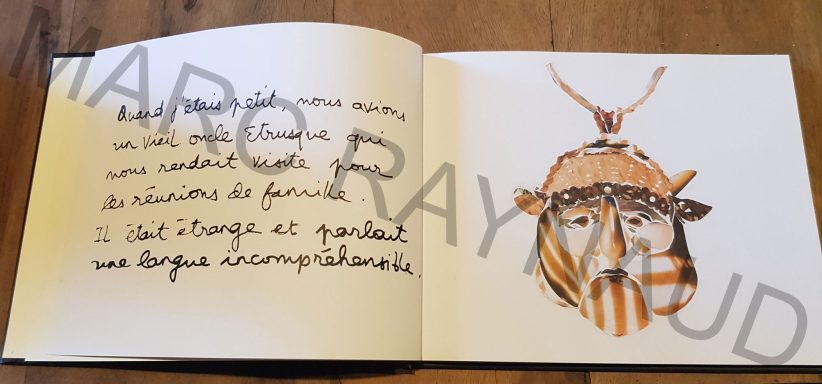 Quand j'étais petit, nous avions
un vieil oncle Etrusque qui
nous rendait visite pour
les réunions de famille.
Il était étrange et parlait
une langue incompréhensible.
MARC RAYNAUD